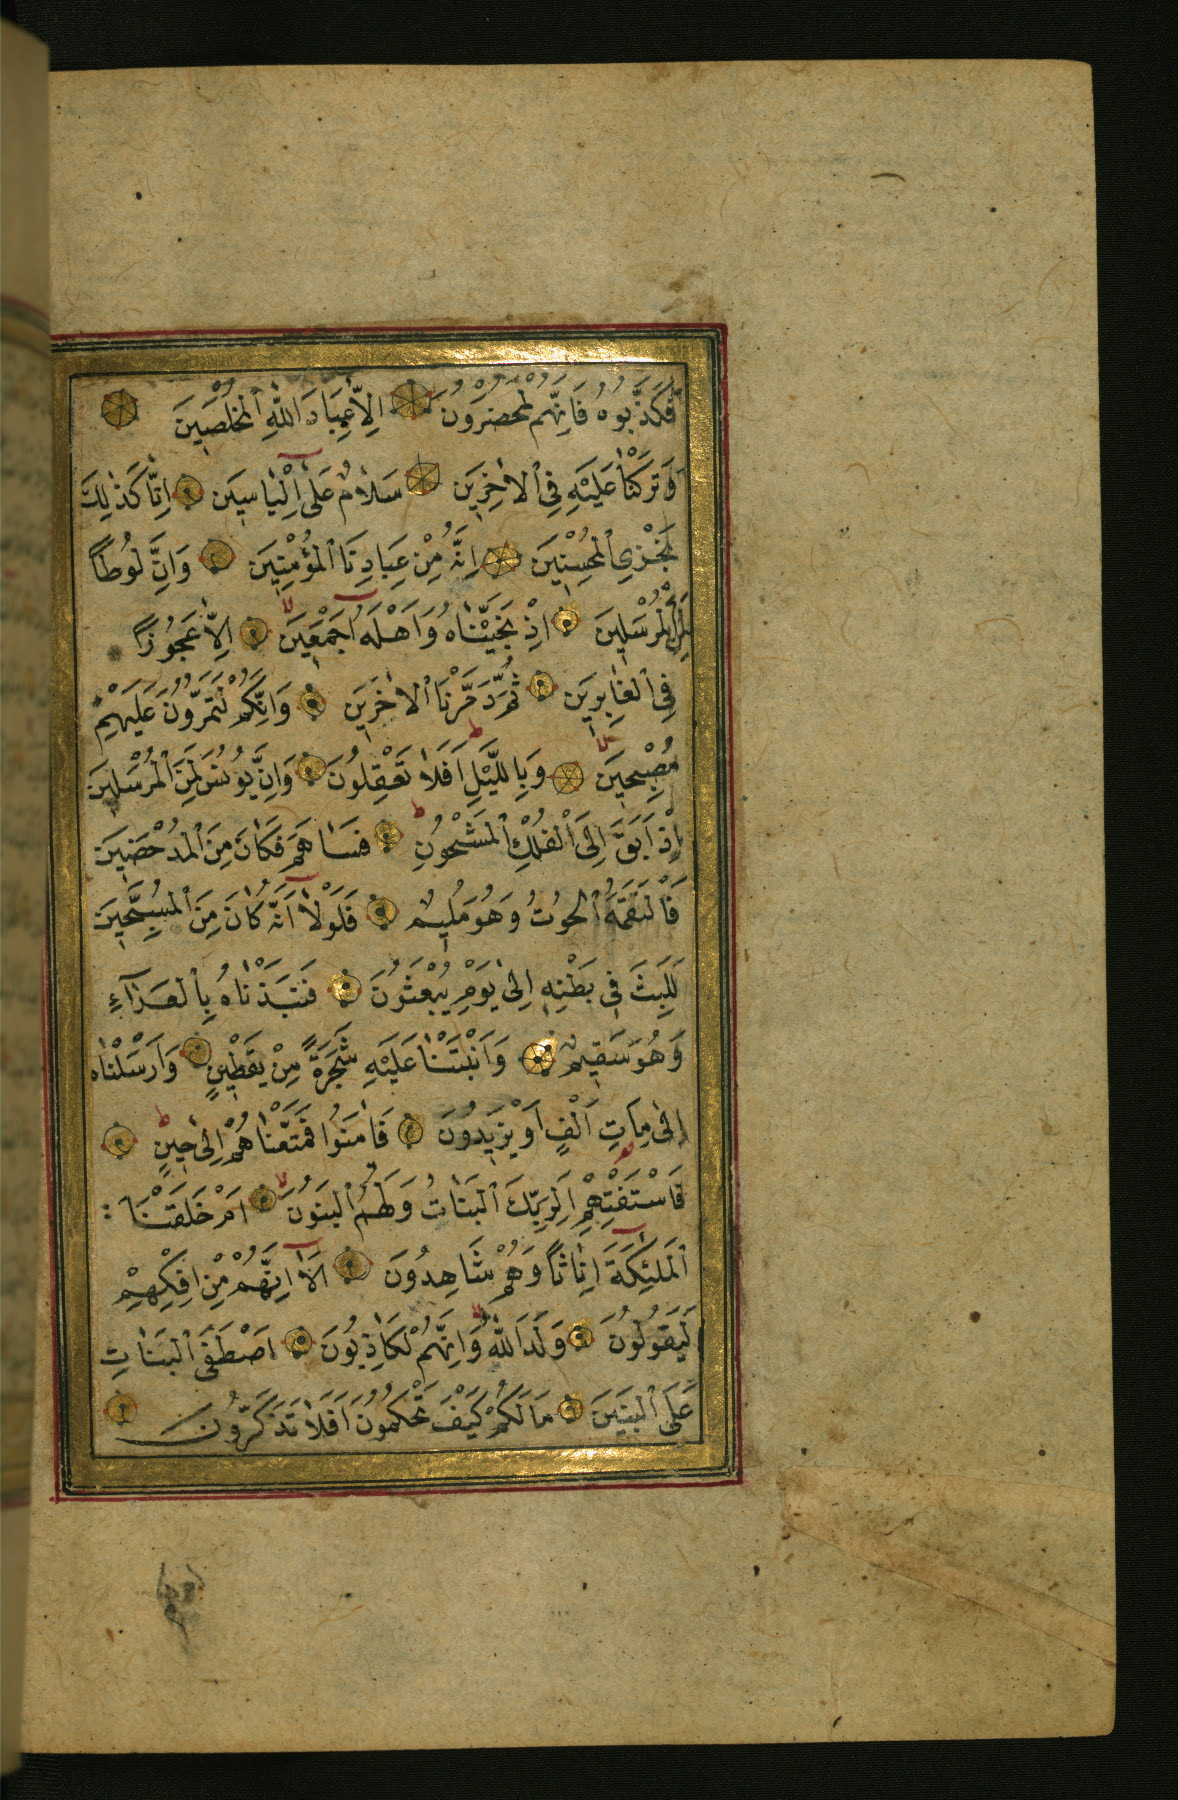 فَكَذَّبُوهُ فَاِنَّهُمْ لَمُحْضَرُونَ اِلَّا عِبَادَ اللّٰهِ الْمُخْلَصِينَ
وَتَرَكْنَا عَلَيْهِ فِي الْاٰخِرِينَ سَلَامٌ عَلٰٓى اِلْيَاسِينَ اِنَّا كَذٰلِكَ
نَجْزِي الْمُحْسِنِينَ اِنَّهُ مِنْ عِبَادِنَا الْمُؤْمِنِينَ وَاِنَّ لُوطًا
لَمِنَ الْمُرْسَلِينَ اِذْ نَجَّيْنَاهُ وَاَهْلَهُٓ اَجْمَعِينَ اِلَّا عَجُوزًا
فِي الْغَابِرِينَ ثُمَّ دَمَّرْنَا الْاٰخَرِينَ وَاِنَّكُمْ لَتَمُرُّونَ عَلَيْهِمْ
مُصْبِحِينَ وَبِاللَّيْلِ اَفَلَا تَعْقِلُونَ وَاِنَّ يُونُسَ لَمِنَ الْمُرْسَلِينَ
اِذْ اَبَقَ اِلَى الْفُلْكِ الْمَشْحُونِ فَسَاهَمَ فَكَانَ مِنَ الْمُدْحَضِينَ
فَالْتَقَمَهُ الْحُوتُ وَهُوَ مُلِيمٌ فَلَوْلَٓا اَنَّهُ كَانَ مِنَ الْمُسَبِّحِينَ
لَلَبِثَ فِي بَطْنِهِ اِلٰى يَوْمِ يُبْعَثُونَ فَنَبَذْنَاهُ بِالْعَرَٓاءِ
وَهُوَ سَقِيمٌ وَاَنْبَتْنَا عَلَيْهِ شَجَرَةً مِنْ يَقْطِينٍ وَاَرْسَلْنَاهُ
اِلٰى مِاَتِ اَلْفٍ اَوْ يَزِيدُونَ فَاٰمَنُوا فَمَتَّعْنَاهُمْ اِلٰى حِينٍ
فَاسْتَفْتِهِمْ اَلِرَبِّكَ الْبَنَاتُ وَلَهُمُ الْبَنُونَ اَمْ خَلَقْنَا
الْمَلٰٓئِكَةَ اِنَاثًا وَهُمْ شَاهِدُونَ اَلَٓا اِنَّهُمْ مِنْ اِفْكِهِمْ
لَيَقُولُونَ وَلَدَ اللّٰهُ وَاِنَّهُمْ لَكَاذِبُونَ اَصْطَفَى الْبَنَاتِ
عَلَى الْبَنِينَ مَا لَكُمْ كَيْفَ تَحْكُمُونَ اَفَلَا تَذَكَّرُونَ